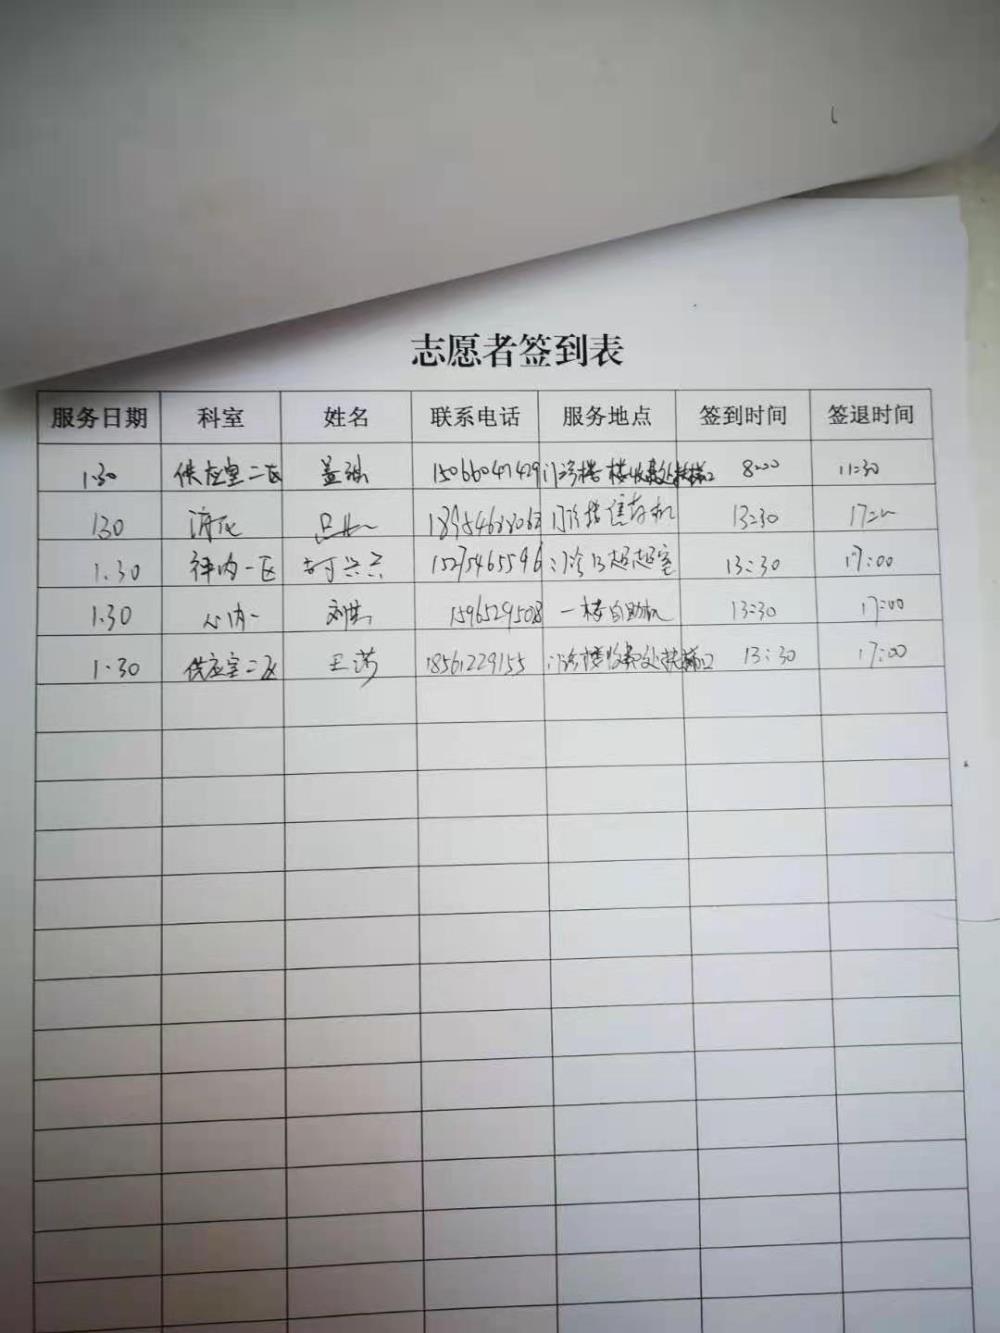 志愿者签到表
服务日期 科室 姓名 联系电话 服务地点 签到时间 签退时间
1.30 供应室二区 盖 15066047429 门诊楼一楼收费处扶梯口 8:00 11:30
1.30 消化 13:30 17:00
1.30 神内一区 15275465596 13:30 17:00
1.30 心内一 刘 1596529508 一楼自助机 13:30 17:00
1.30 供应室二区 王 18561229155 门诊楼收费处扶梯口 13:30 17:00